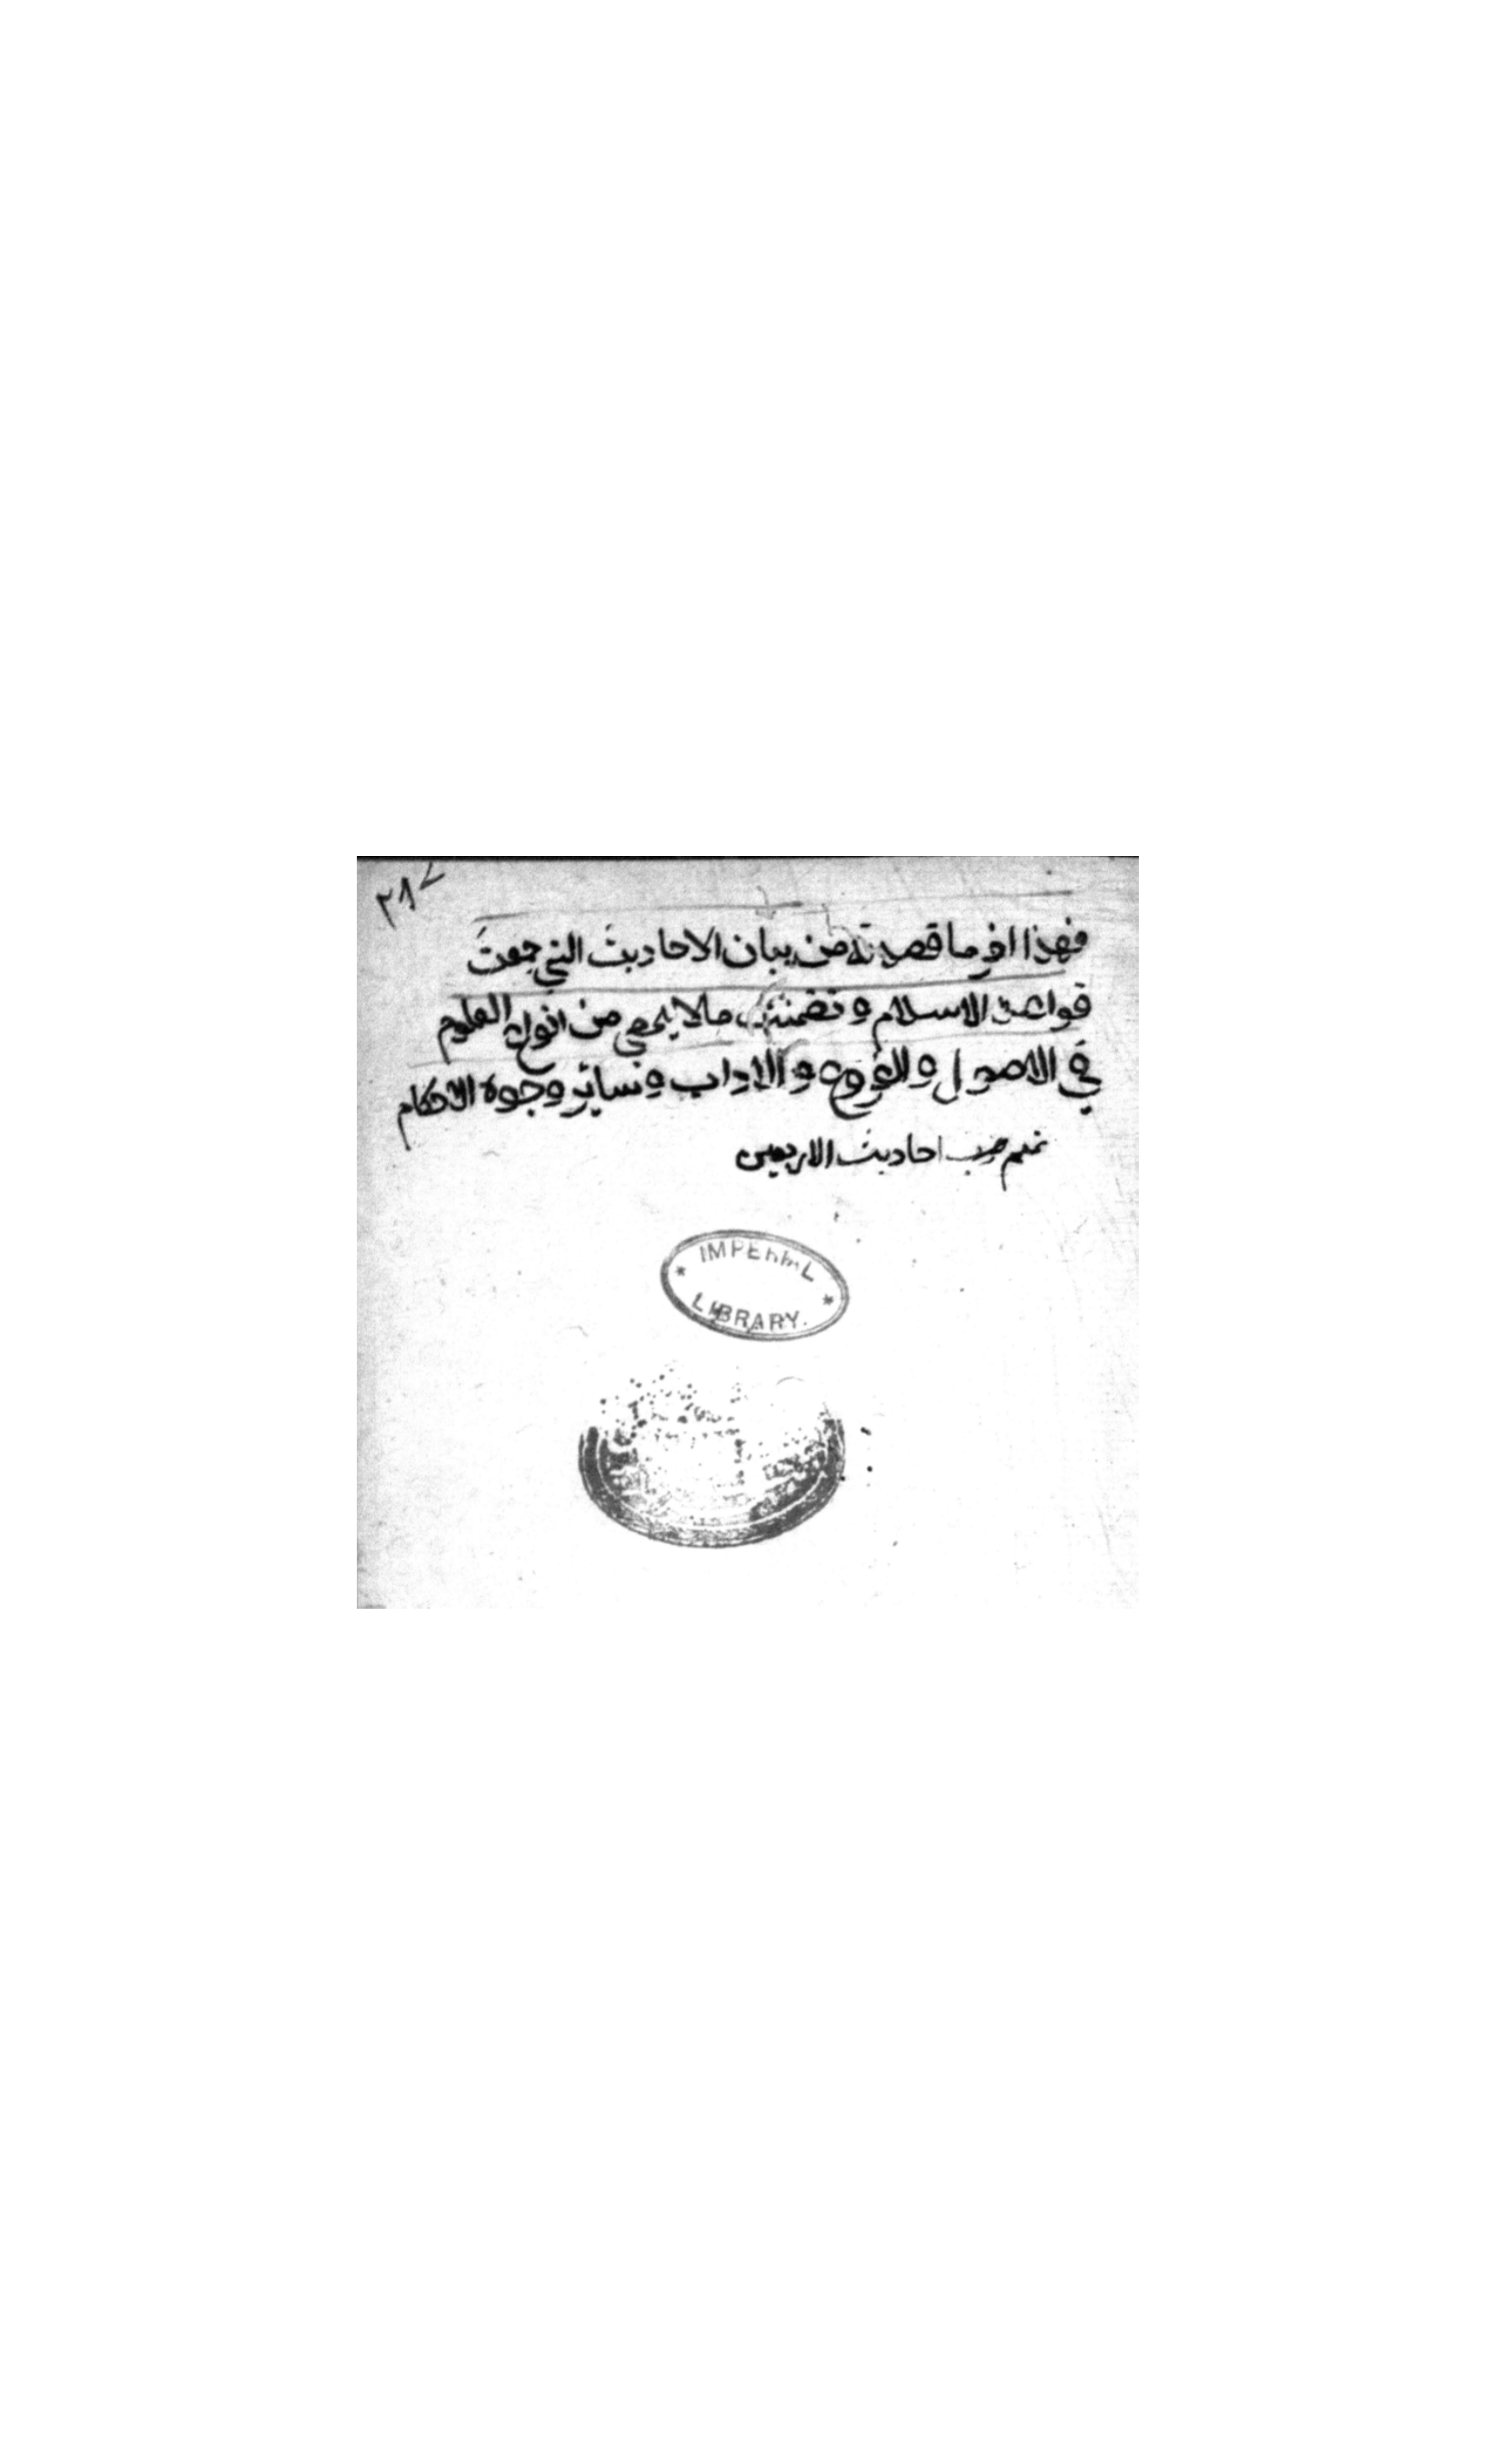 ٢٨٧
فهذا اخر ما قصدته من بيان الاحاديث التي جمعت
قواعد الاسلام و تضمنت ما لا يحصي من انواع العلوم
في الاصول و الفروع و الاداب و ساير وجوه الاحكام
احاديث الاربعين
IMPERIAL
LIBRARY.